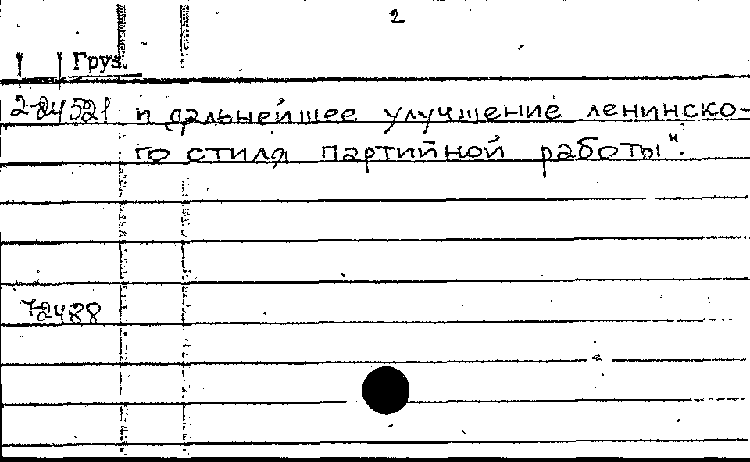 2
Груз.
2-24521 и дальнейшее улучшение ленинско-
го стиля партийной работы".
72488